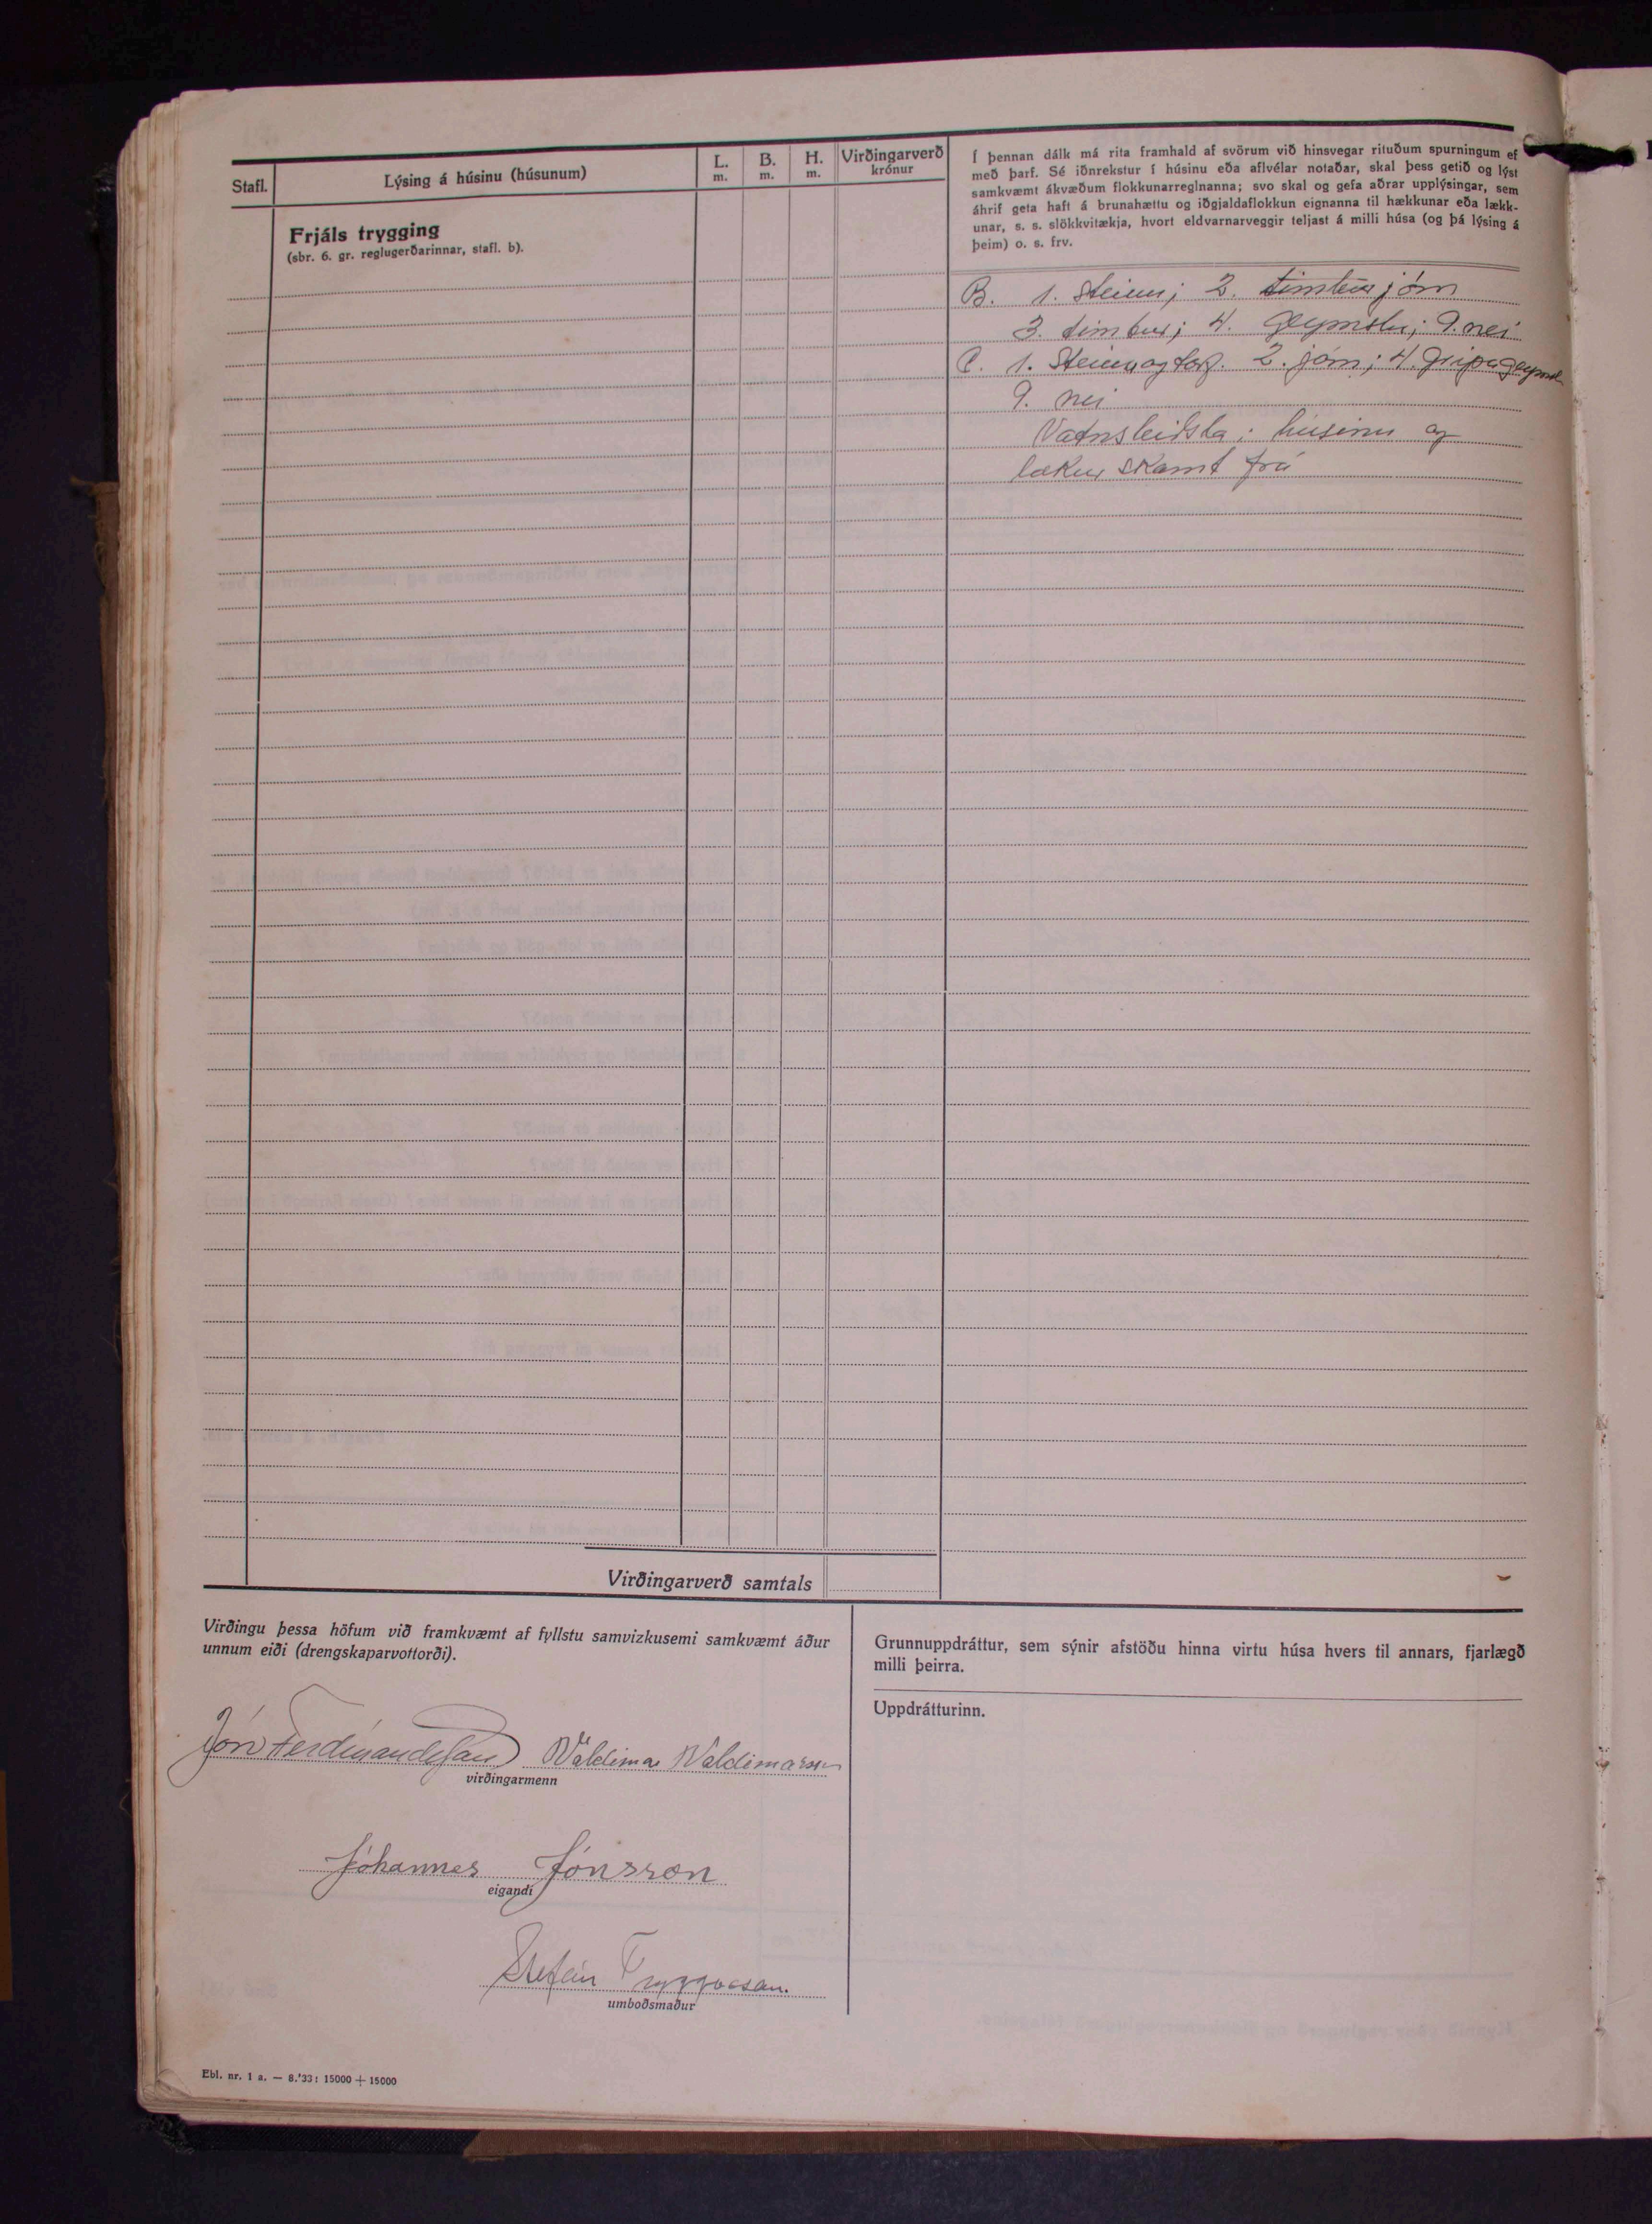 Stafl.
Lýsing á húsinu (húsunum)
L.
m.
B.
m.
H.
m.
Virðingarverð
krónur
Frjáls trygging
(sbr. 6. gr. reglugerðarinnar, stafl. b).
Í þennan dálk má rita framhald af svörum við hinsvegar rituðum spurningum ef
með þarf. Sé iðnrekstur í húsinu eða aflvélar notaðar, skal þess getið og lýst
samkvæmt ákvæðum flokkunarreglnanna; svo skal og gefa aðrar upplýsingar, sem
áhrif geta haft á brunahættu og iðgjaldaflokkun eignanna til hækkunar eða lækk-
unar, s. s. slökkvitækja, hvort eldvarnarveggir teljast á milli húsa (og þá lýsing á
þeim) o. s. frv.
B. 1. Steinn; 2. timbur járn
3. timbur; 4. geymslu; 9. nei
C. 1. Steinn og torf. 2. járn; 4. gripageymsl
9. nei
Vatnsleiðsla í húsinu og
lækur skamt frá
Virðingarverð samtals
Virðingu þessa höfum við framkvæmt af fyllstu samvizkusemi samkvæmt áður
unnum eiði (drengskaparvottorði).
Jón Ferdínandsson Valdimar Valdimarsson
virðingarmenn
Jóhannes Jónsson
eigandi
Stefán Tryggvason.
umboðsmaður
Grunnuppdráttur, sem sýnir afstöðu hinna virtu húsa hvers til annars, fjarlægð
milli þeirra.
Uppdrátturinn.
Ebl. nr. 1 a. — 8.'33: 15000 + 15000